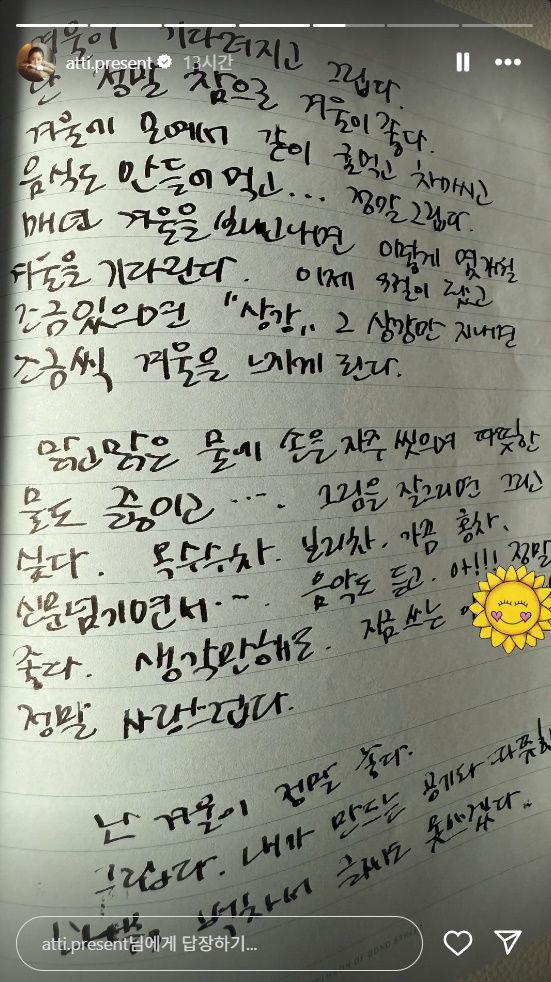 겨울이 기다려지고 그립다.
atti.present 13시간
난 정말 참으로 겨울이 좋다.
겨울에 모여서 같이 귤먹고 차마시고
음식도 만들어먹고... 정말 그립다.
매년 겨울을 보내면 이렇게
겨울을 기다린다. 이제 9월이 됐고
조금있으면 "상강" 그 상강만 지나면
조금씩 겨울을 느끼게 된다.
맑고맑은 물에 손을 자주 씻으며 따뜻한
물도 끓이고 .... 그림을 잘그리면 그리고
싶다. 옥수수차. 보리차. 가끔 홍차.
신문넘기면서.... 음악도 듣고. 아!!! 정말
좋다. 생각만해도. 지금 쓰는
정말 사랑스럽다.
난 겨울이 정말 좋다.
그립다. 내가 만드는 공기와 따뜻한
벅차서 글씨도 못쓰겠다.
OF BOND
atti.present님에게 답장하기...